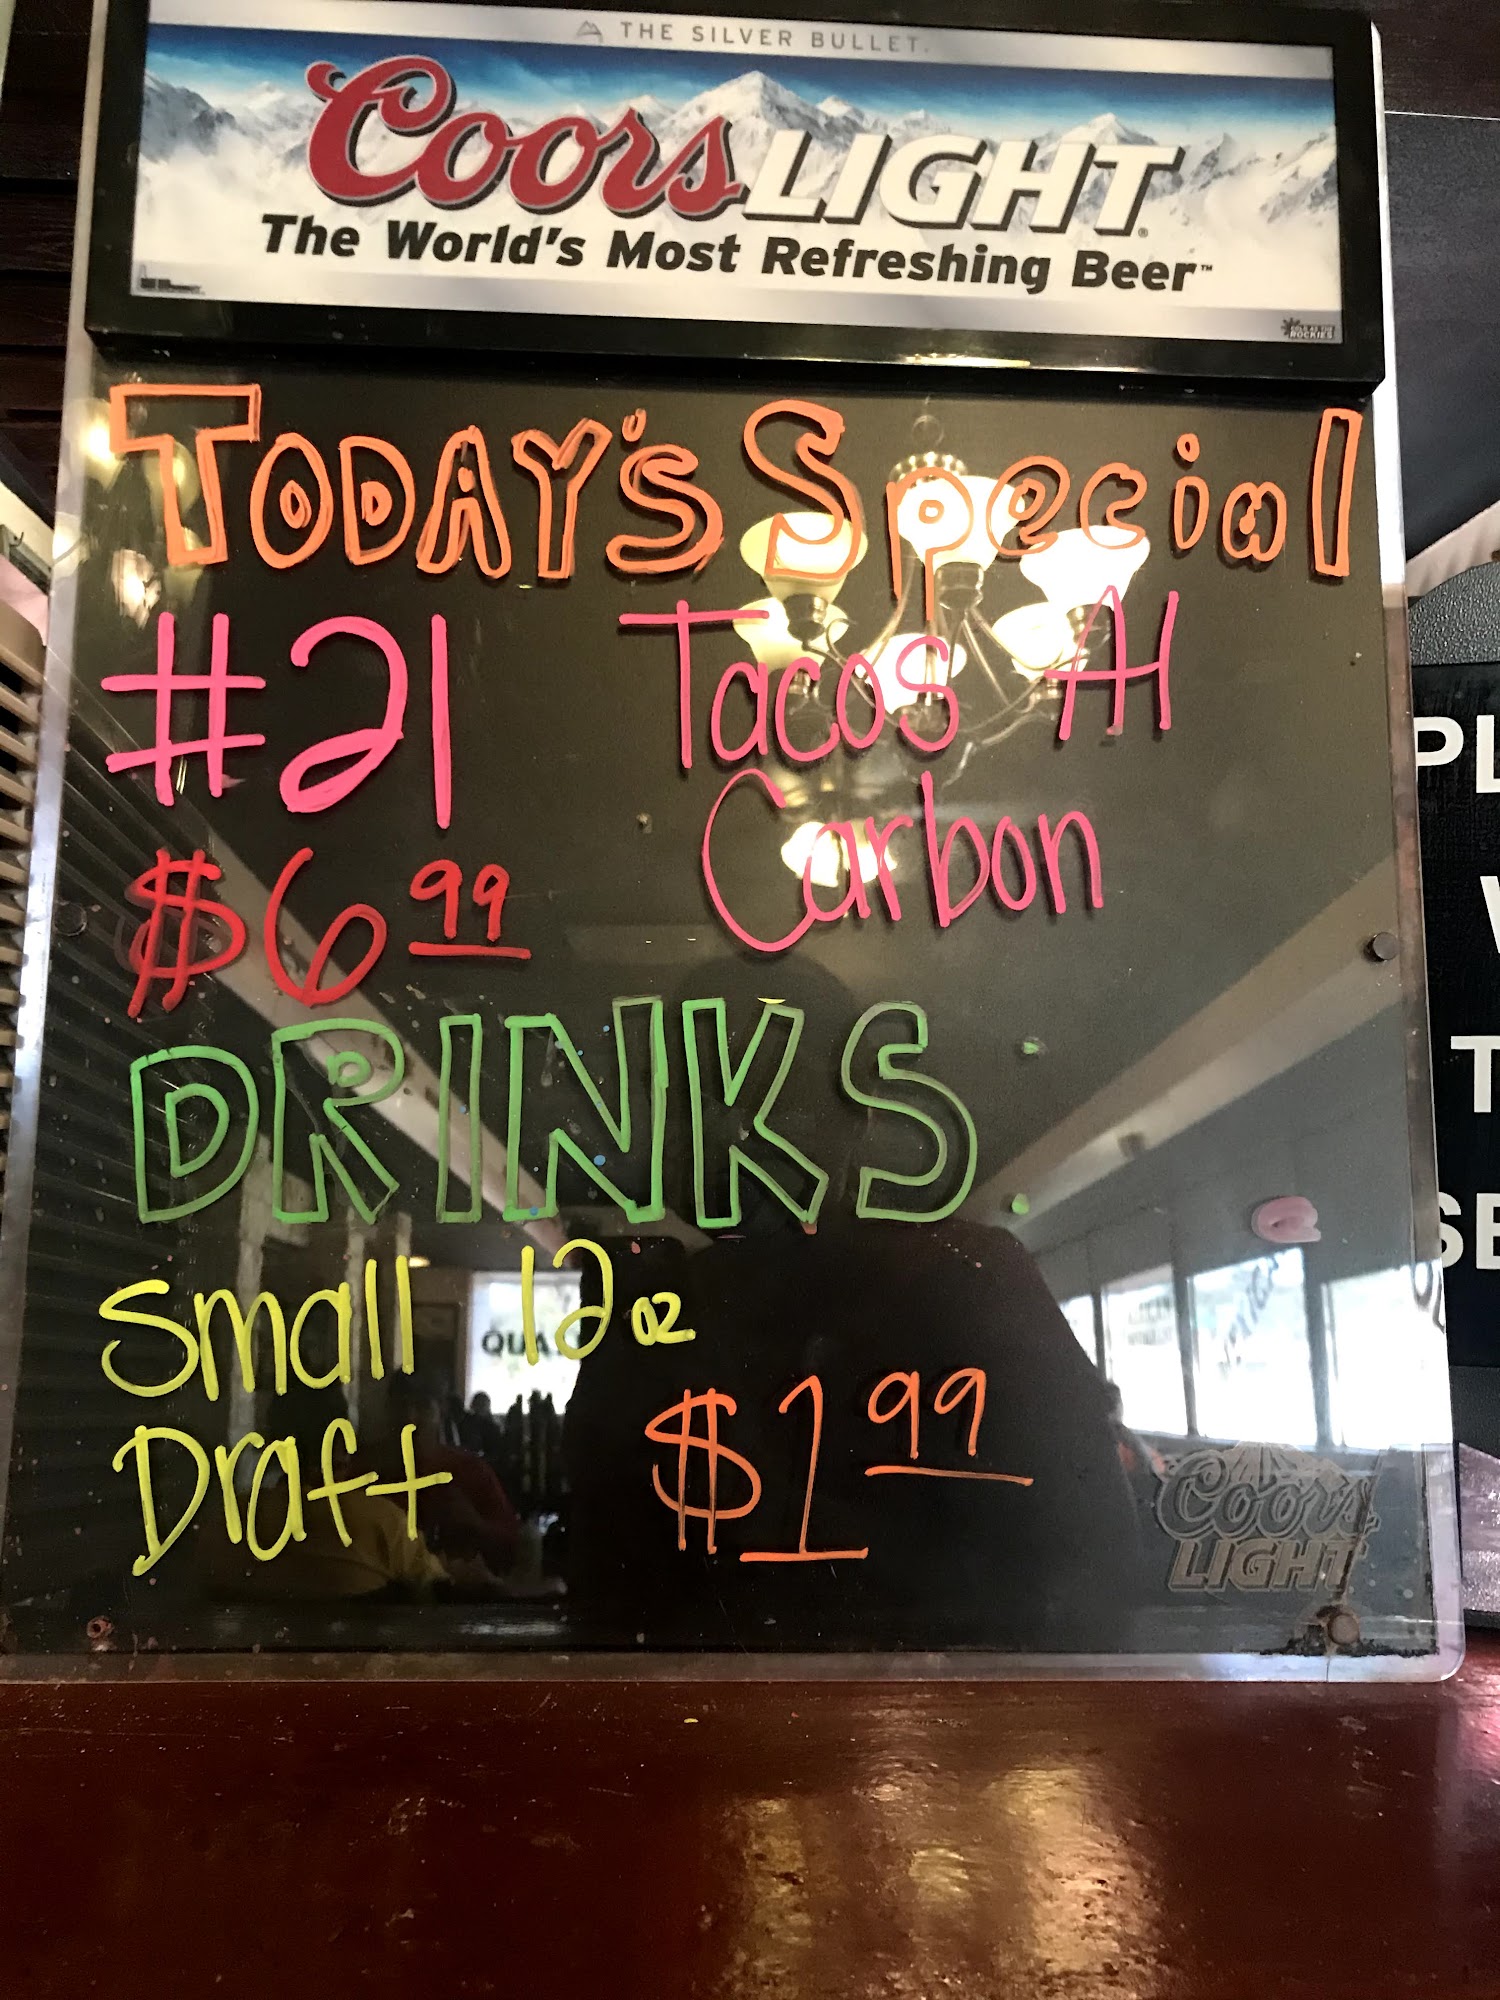 THE SILVER BULLET.
Coors LIGHT
The World's Most Refreshing Beer™
COLD AS THE
ROCKIES
TODAY'S Special
#21 Tacos Al
Carbon
$6.99
DRINKS.
Small 12oz
Draft $1.99
Coors
LIGHT
QUA
PL
W
T
SE